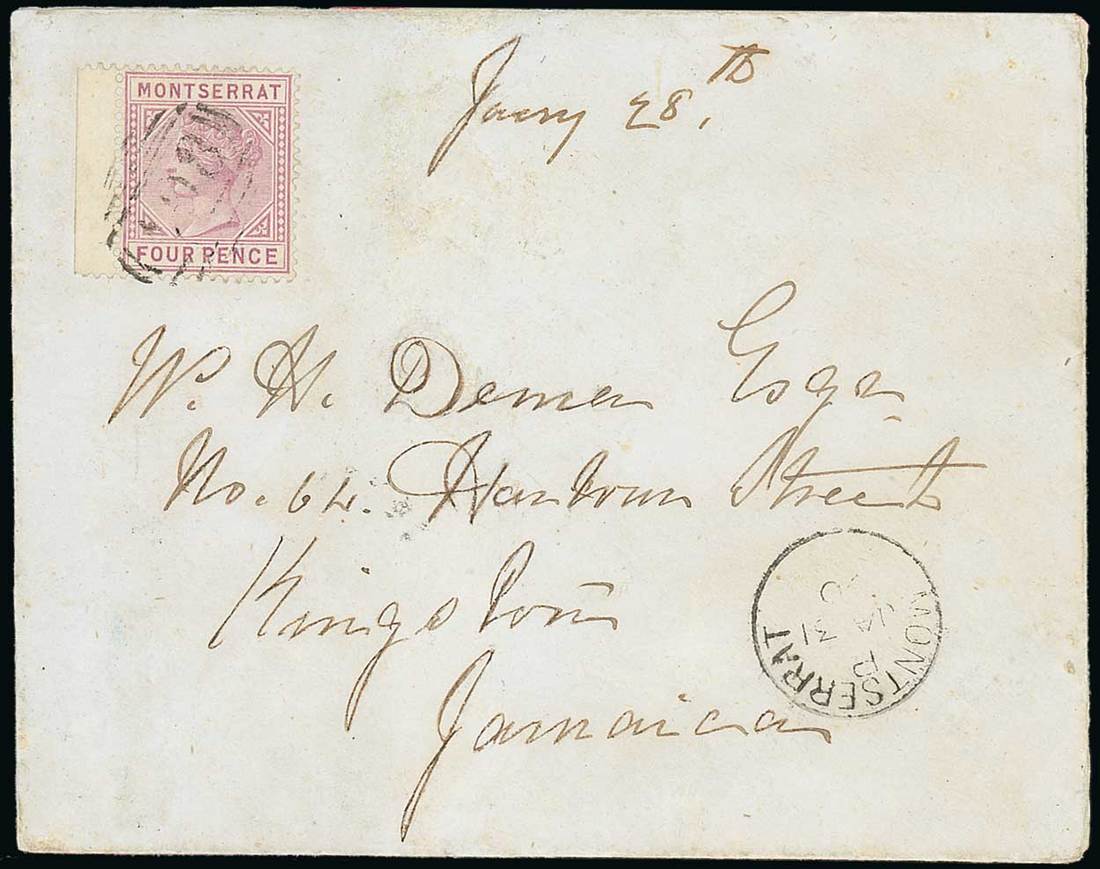 MONTSERRAT
FOUR PENCE
Jany 28th
W. H. Demer Esqr
No. 64. Hanover Street
Kingston
Jamaica
MONTSERRAT
JA 31